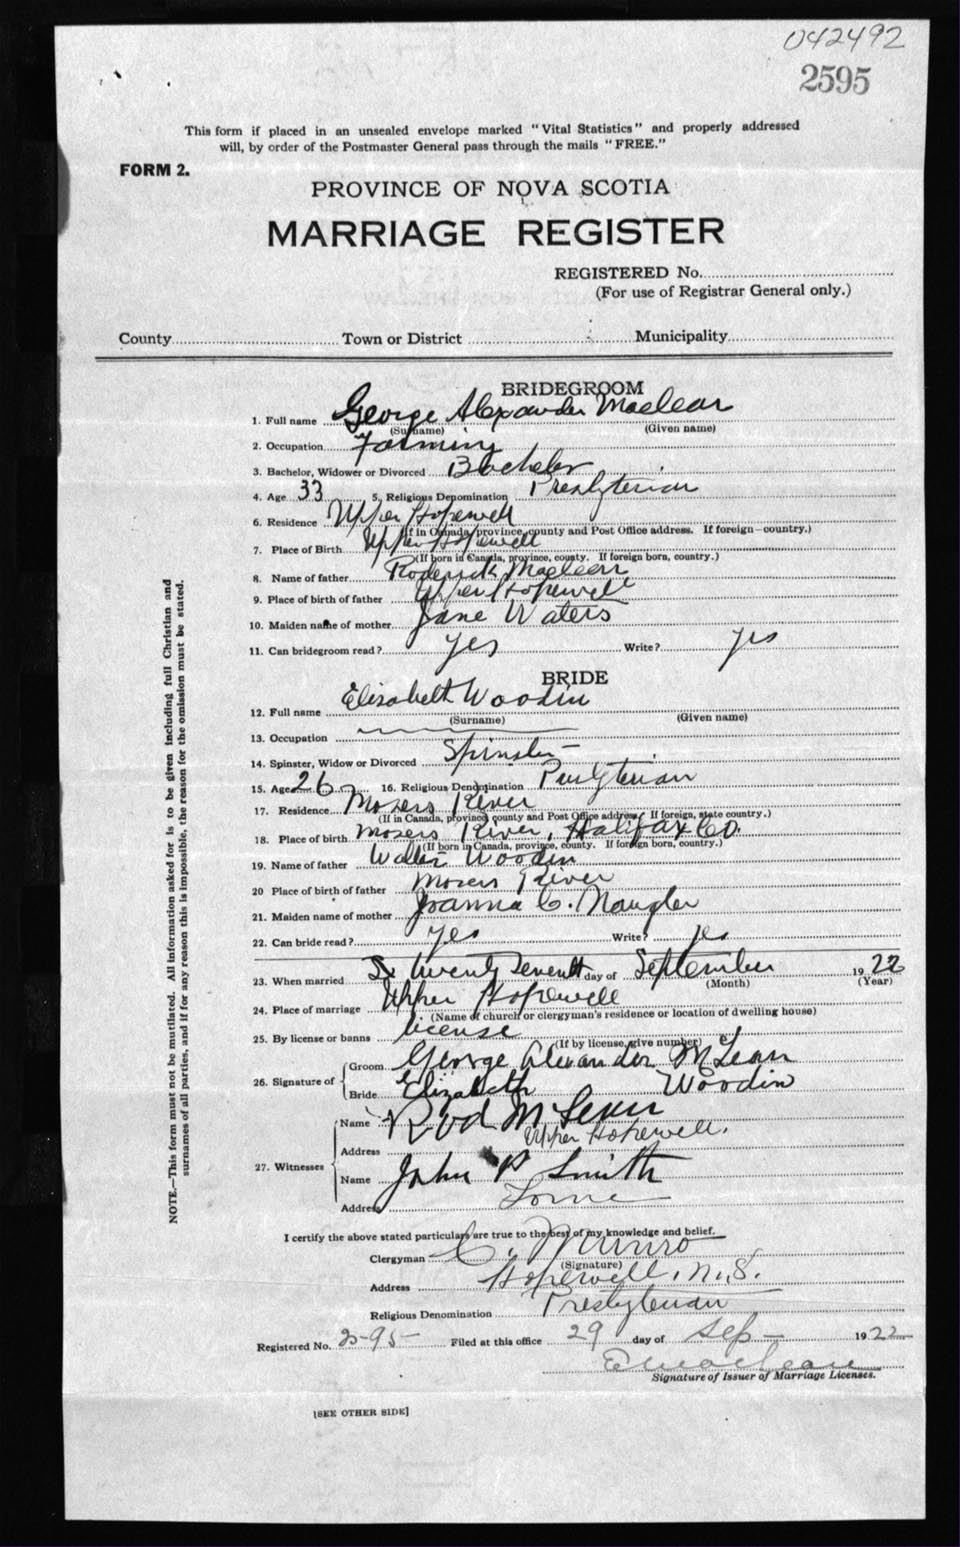 042492
2595
This form if placed in an unsealed envelope marked "Vital Statistics" and properly addressed
will, by order of the Postmaster General pass through the mails "FREE."
FORM 2.
PROVINCE OF NOVA SCOTIA
MARRIAGE REGISTER
REGISTERED No.
(For use of Registrar General only.)
County Town or District Municipality
BRIDEGROOM
1. Full name George Alexander Maclean
(Surname) (Given name)
2. Occupation Farming
3. Bachelor, Widower or Divorced Bachelor
4. Age 33 5. Religious Denomination Presbyterian
6. Residence Upper Hopewell
(If in Canada, province, county and Post Office address. If foreign—country.)
7. Place of Birth Upper Hopewell
(If born in Canada, province, county. If foreign born, country.)
8. Name of father Roderick Maclean
9. Place of birth of father Upper Hopewell
10. Maiden name of mother Jane Waters
11. Can bridegroom read? Yes Write? yes
BRIDE
12. Full name Elizabeth Woodin
(Surname) (Given name)
13. Occupation
14. Spinster, Widow or Divorced Spinster
15. Age 26 16. Religious Denomination Presbyterian
17. Residence Mosers River
(If in Canada, province, county and Post Office address. If foreign, state country.)
18. Place of birth Mosers River, Halifax Co.
(If born in Canada, province, county. If foreign born, country.)
19. Name of father Walter Woodin
20 Place of birth of father Mosers River
21. Maiden name of mother Joanna C. Naugler
22. Can bride read? Yes Write? yes
23. When married twenty seventh day of September 1922
(Month) (Year)
24. Place of marriage Upper Hopewell
(Name of church or clergyman's residence or location of dwelling house)
25. By license or banns license
(If by license, give number)
26. Signature of Groom George Alexander McLean
Bride Elizabeth Woodin
27. Witnesses Name Rod McLean
Address Upper Hopewell.
Name John P Smith
Address Lorne
I certify the above stated particulars are true to the best of my knowledge and belief.
Clergyman C. Munro
(Signature)
Address Hopewell, N.S.
Religious Denomination Presbyterian
Registered No. 2595 Filed at this office 29 day of Sep 1922
E Maclean
Signature of Issuer of Marriage Licenses.
[SEE OTHER SIDE]
NOTE.—This form must not be mutilated. All information asked for is to be given including full Christian and
surnames of all parties, and if for any reason this is impossible, the reason for the omission must be stated.